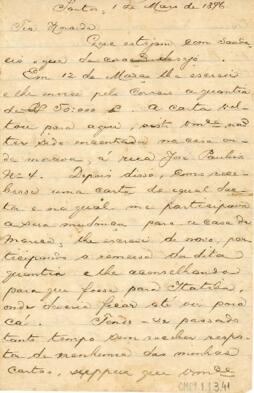 Santos, 1 de Maio de 1896.
Tia
Que estejam com saude
é o que de coração desejo.
Em 12 de Março lhe escrevi
e lhe enviei pelo Correio a quantia
de 50:000 A carta vol-
tou para aqui, visto vmcê não
ter sido encontrada na casa on-
de morava, à rua José Paulino
Nº 4. Depois disso, como rece-
besse uma carta de igual da-
ta e na qual me participava
a sua mudança para a casa de
lhe escrevi de novo, par-
ticipando a remessa da dita
quantia e lhe aconselhando
para que fosse para Itatiba,
onde deveria ficar até vir para
cá. Tendo-se passado
tanto tempo sem receber respos-
ta de nenhuma das minhas
cartas, suppuz que vmcê
CMP1.1.3.41